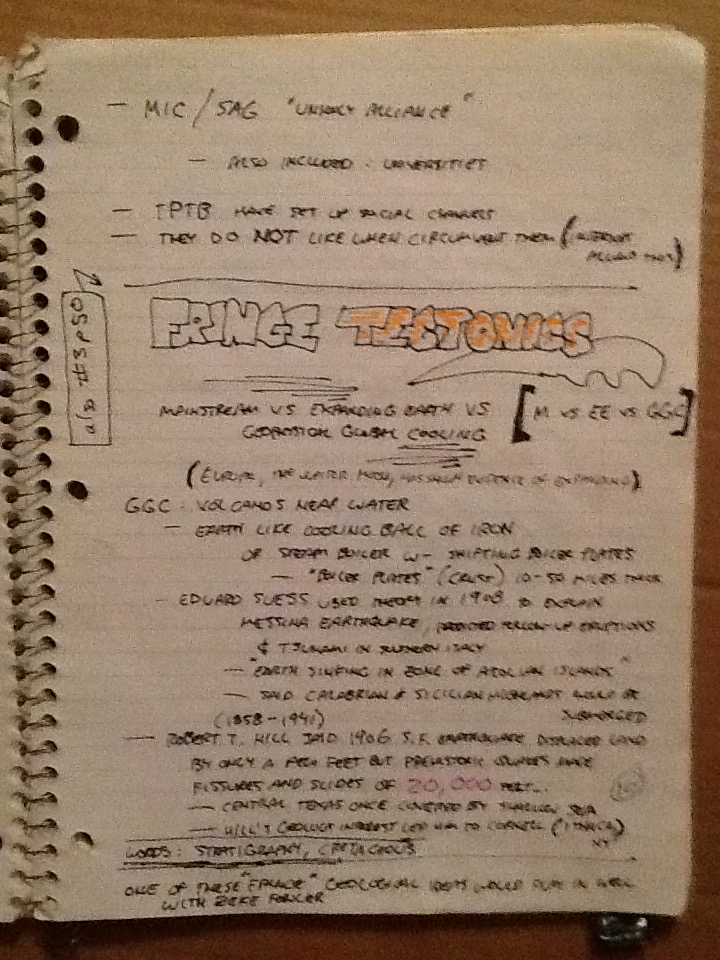 — MIC / SAG "UNHOLY ALLIANCE"
— ALSO INCLUDED - UNIVERSITIES
— TPTB HAVE SET UP SOCIAL CHANNELS
— THEY DO NOT LIKE WHEN CIRCUMVENT THEM (INTERNET
ALLOWS THIS)
FRINGE TECTONICS
also #3 p50
MAINSTREAM VS EXPANDING EARTH VS [M VS EE VS GGC]
GLOBAL COOLING
(EUROPE, THE EVIDENCE OF EXPANDING)
GGC: VOLCANOS NEAR WATER
— EARTH LIKE COOLING BALL OF IRON
OR STEAM BOILER W- SHIFTING BOILER PLATES
— "BOILER PLATES" (CRUST) 10-50 MILES THICK
- EDUARD SUESS USED THEORY IN 1908 TO EXPLAIN
MESSINA EARTHQUAKE, PREDICTED FOLLOW-UP ERUPTIONS
& TSUNAMI IN SOUTHERN ITALY
— "EARTH SINKING IN ZONE OF AEOLIAN ISLANDS"
— SAID CALABRIAN & SICILIAN HIGHLANDS WOULD BE
SUBMERGED
(1858-1941)
— ROBERT T. HILL SAID 1906 S.F. EARTHQUAKE DISPLACED LAND
BY ONLY A FEW FEET BUT PREHISTORIC QUAKES MADE
FISSURES AND SLIDES OF 20,000 FEET...
— CENTRAL TEXAS ONCE COVERED BY SHALLOW SEA
— HILL'S GEOLOGY INTEREST LED HIM TO CORNELL (ITHACA)
NY
WORDS: STRATIGRAPHY, CRETACEOUS
ONE OF THESE "FRINGE" GEOLOGICAL IDEAS WOULD IN WELL
WITH ZEKE